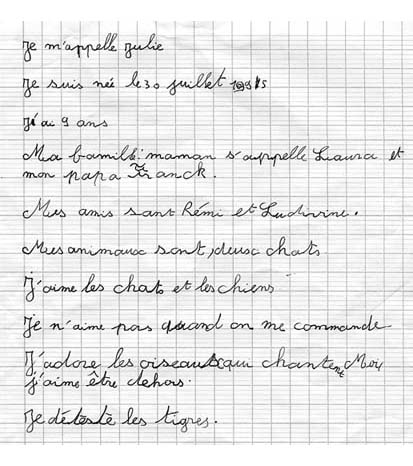 Je m'appelle Julie
Je suis née le 30 juillet 1995
J'ai 9 ans
Ma famille: maman s'appelle Laura et
mon papa Franck.
Mes amis sont Rémi et Ludivine.
Mes animaux sont, deux chats
J'aime les chats et les chiens
Je n'aime pas quand on me commande
J'adore les oiseaux qui chantent Moi
j'aime être dehors.
Je déteste les tigres.